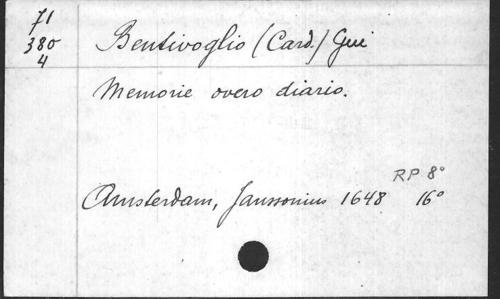 71
380
4
Bentivoglio (Card.) Gui
Memorie overo diario.
RP 8°
Amsterdam, Janssonius 1648 16°